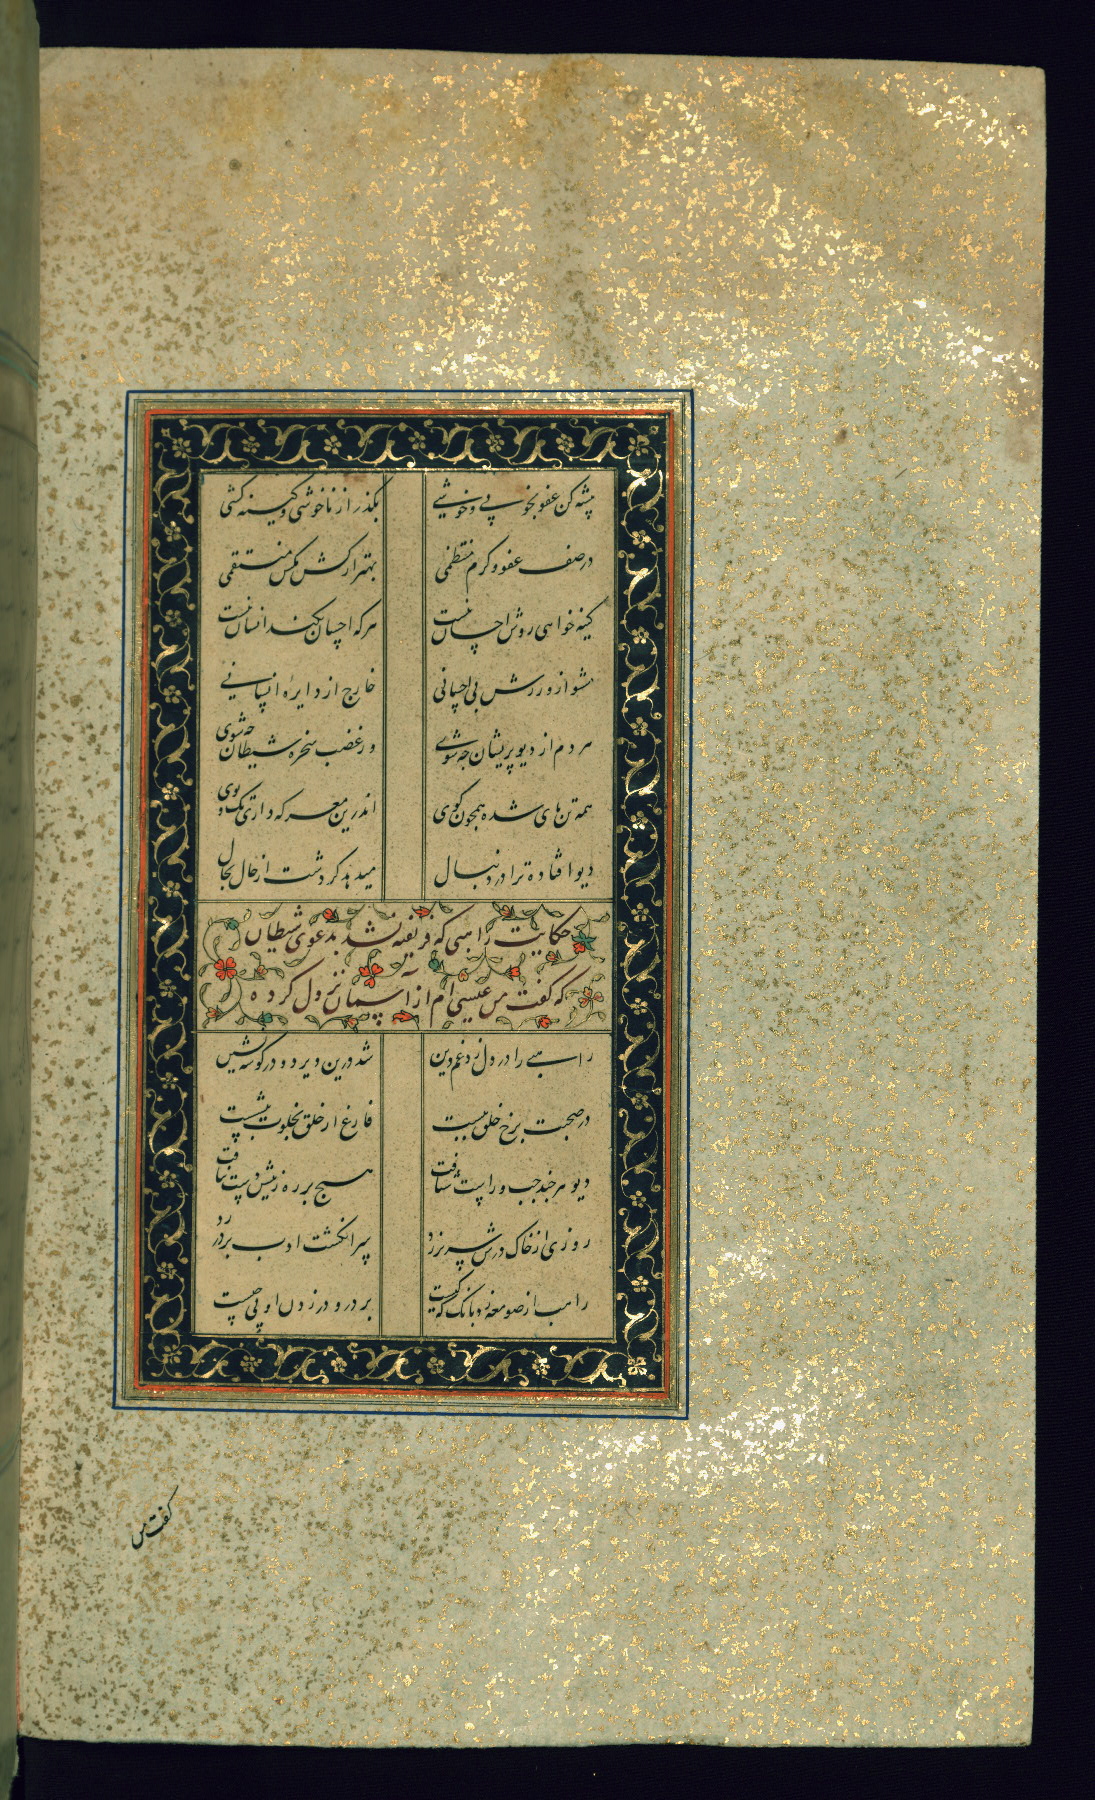 پیشه کن عفو بخوی و خوشی بگذر از ناخوشی و کینه کشی
در صف عفو و کرم منتظمی بهتر از کش مکش منتقمی
کینه خواهی روش احسان نیست هر که احسان نکند انسان نیست
مشو از ورزش بی احسانی خارج از دایره انسانی
مردم از دیو پریشان چه شوی وز غضب سخره شیطان چه شوی
همه تن پای شده همچون گوی اندرین معرکه داری تک و پوی
دیو افتاده ترا در دنبال میدهد گردشت از حال بحال
حکایت راهبی که فریفته نشد بدعوی شیطان
که گفت من عیسی ام از آسمان نزول کرده
راهبی را در دل زد غم دین شد درین دیر دو در گوشه نشین
در صحبت برخ خلق ببست فارغ از خلق بخلوت بنشست
دیو هر چند چپ و راست شتافت هیچ بر رهزنیش دست نیافت
روزی از خاک درش سر بر زد سر انگشت ادب بر در زد
راهب از صومعه زد بانگ که کیست بر در و در زدن او پی چیست
گفت من